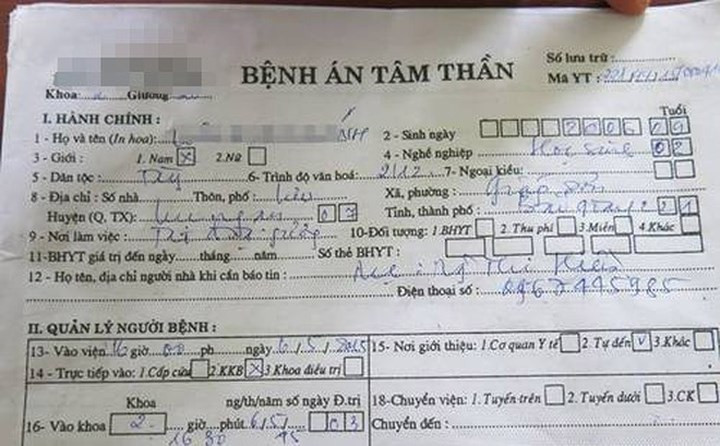 BỆNH ÁN TÂM THẦN
Số lưu trữ :
Mã YT :
Khoa: Giường
I. HÀNH CHÍNH :
Tuổi
1 - Họ và tên (In hoa) : 2 - Sinh ngày 2006 09
3 - Giới : 1. Nam X 2. Nữ 4 - Nghề nghiệp Học sinh 02
5 - Dân tộc : Tày 6- Trình độ văn hoá: 2/12 7- Ngoại kiều:
8 - Địa chỉ : Số nhà Thôn, phố : Xã, phường :
Huyện (Q, TX): 07 Tỉnh, thành phố : 21
9 - Nơi làm việc : 10-Đối tượng: 1.BHYT 2. Thu phí 3.Miễn 4.Khác
11-BHYT giá trị đến ngày tháng năm Số thẻ BHYT :
12 - Họ tên, địa chỉ người nhà khi cần báo tin :
Điện thoại số : 0967445985
II. QUẢN LÝ NGƯỜI BỆNH :
13- Vào viện 16 giờ 00 ph ngày 6/5/2015 15- Nơi giới thiệu: 1.Cơ quan Y tế 2. Tự đến V 3.Khác
14 - Trực tiếp vào: 1.Cấp cứu 2.KKB X 3 Khoa điều trị
Khoa ng/th/năm số ngày Đ.trị 18-Chuyển viện: 1. Tuyến trên 2. Tuyến dưới 3.CK
16- Vào khoa 2 giờ phút 6/5/ 03 Chuyển đến :
16 30 15